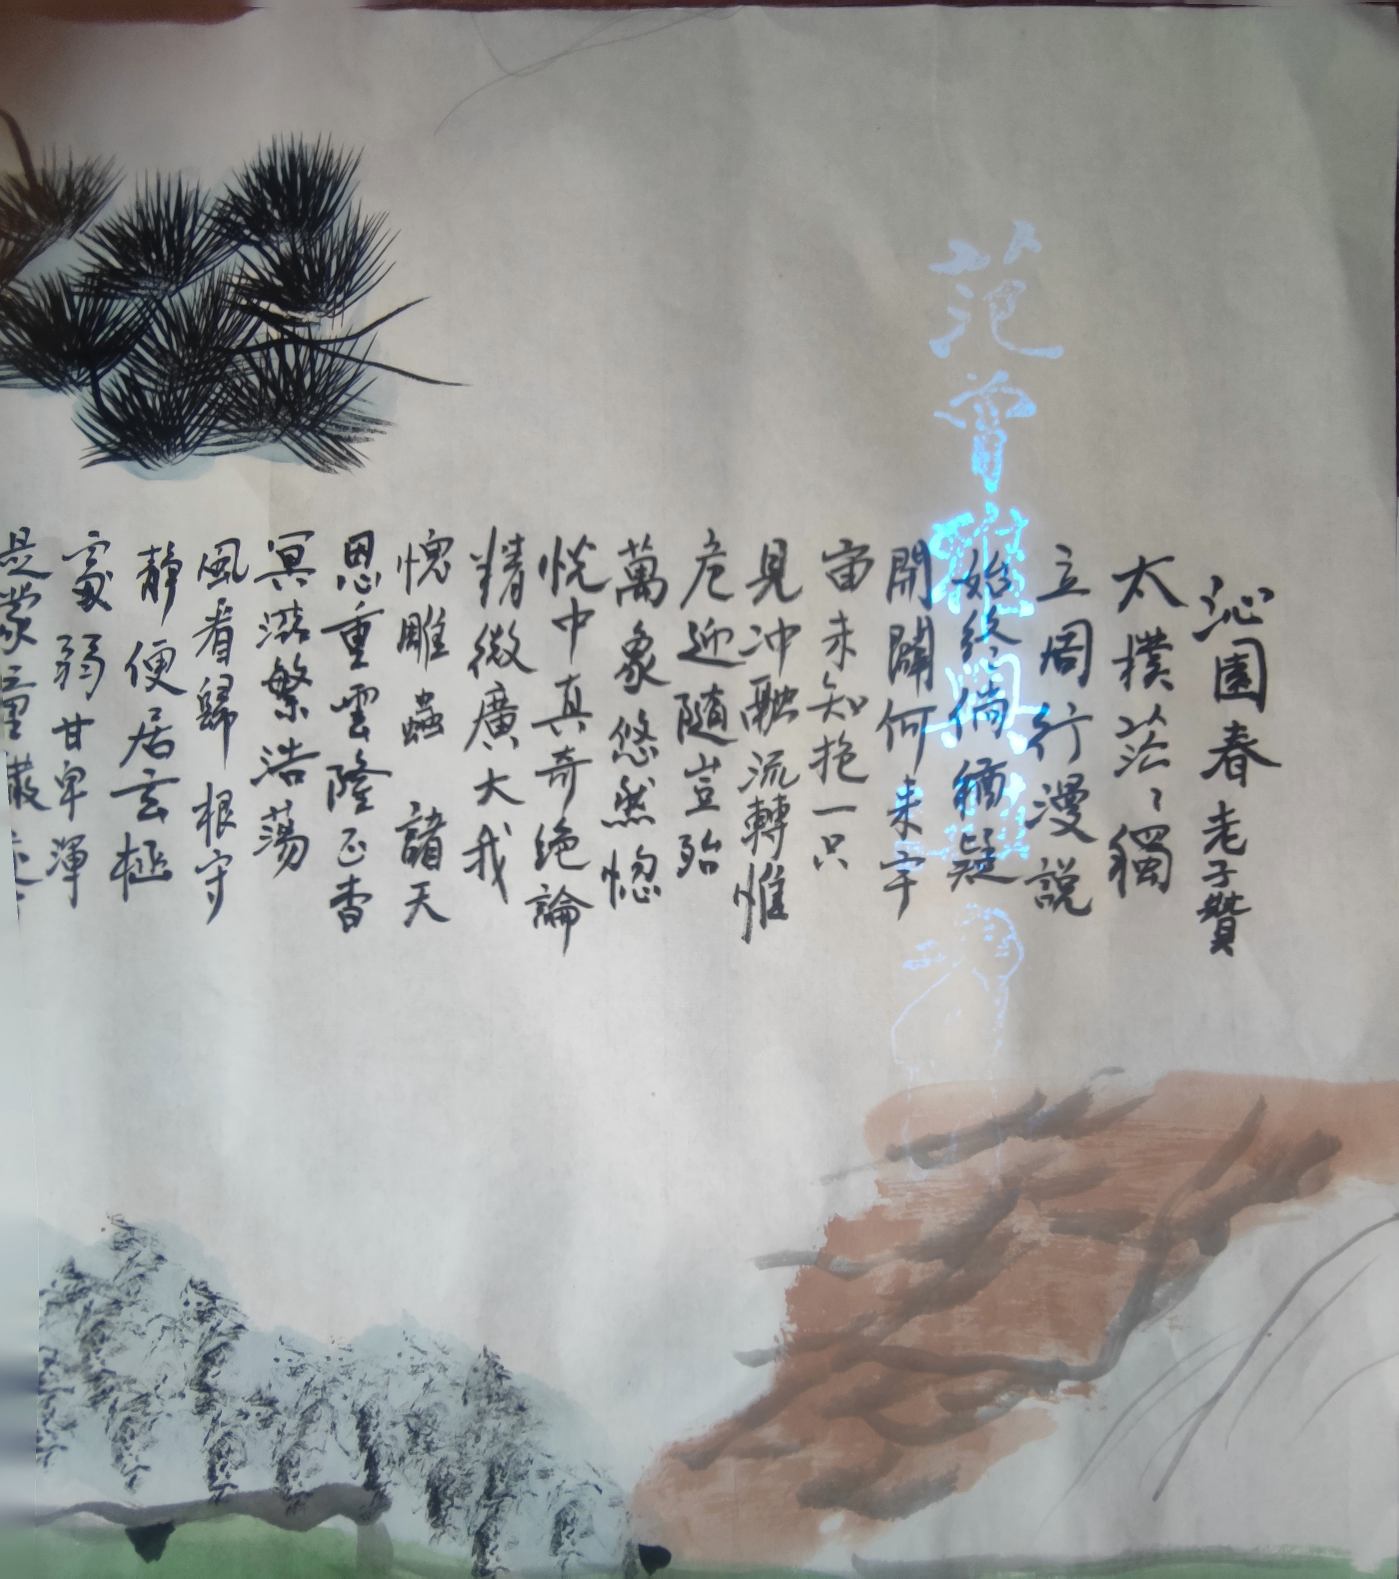 沁園春 老子贊
太樸茫〻獨
立周行漫説
始終倘猶疑
開闢何来宇
宙未知抱一只
見冲融流轉惟
危迎隨豈殆
萬象悠然惚
恍中真奇绝論
精微廣大我
愧雕蟲 諸天
恩重雲隆正杳
冥游繁浩荡
風看歸根守
静便居玄極
寂弱甘卑渾
是蒙童
范曾